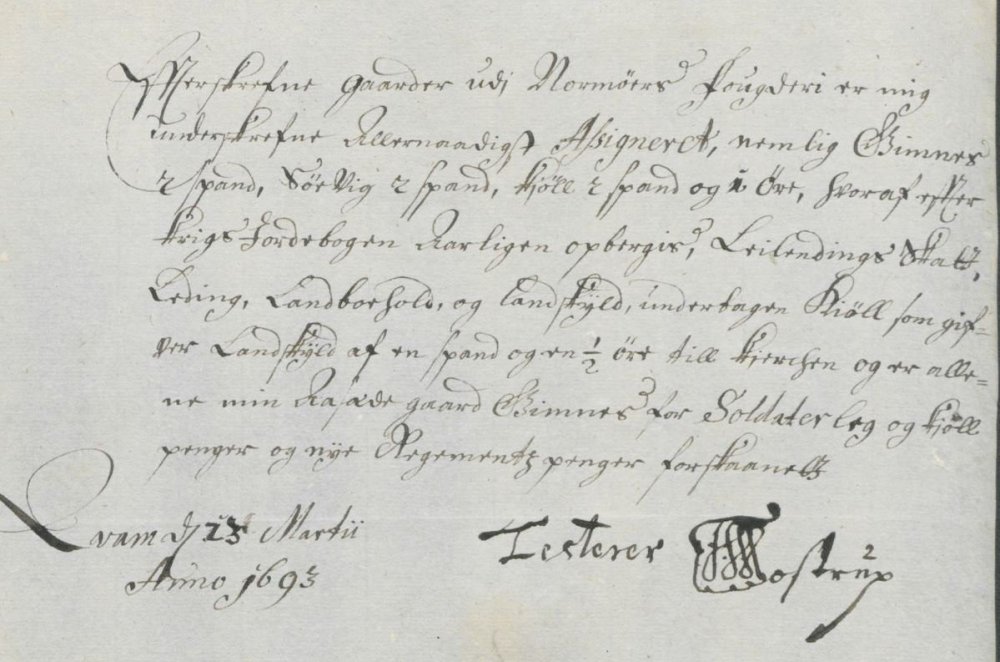 Efterskrefne gaarder udi Normøers fougderi er mig
underskrefne Allernaadigst Assigneret, nemlig Gimnes
2 spand, Søevig 2 spand, Kiøll 2 spand og 1 Øre, hvoraf efter
Krigs Jordebogen Aarligen opbergis, Leilendings Skatt,
Leding, Landboehold, og landskyld, undertagen Kiøll som gif-
ver Landskyld af en spand og en ½ øre till Kierchen og er alle-
ne min Asæde gaard Gimnes for Soldaterleg og Kiøll
penger og nye Regementz penger forskaanett
Qvam d 23 Martii
Anno 1693
Testerer
Tostrup